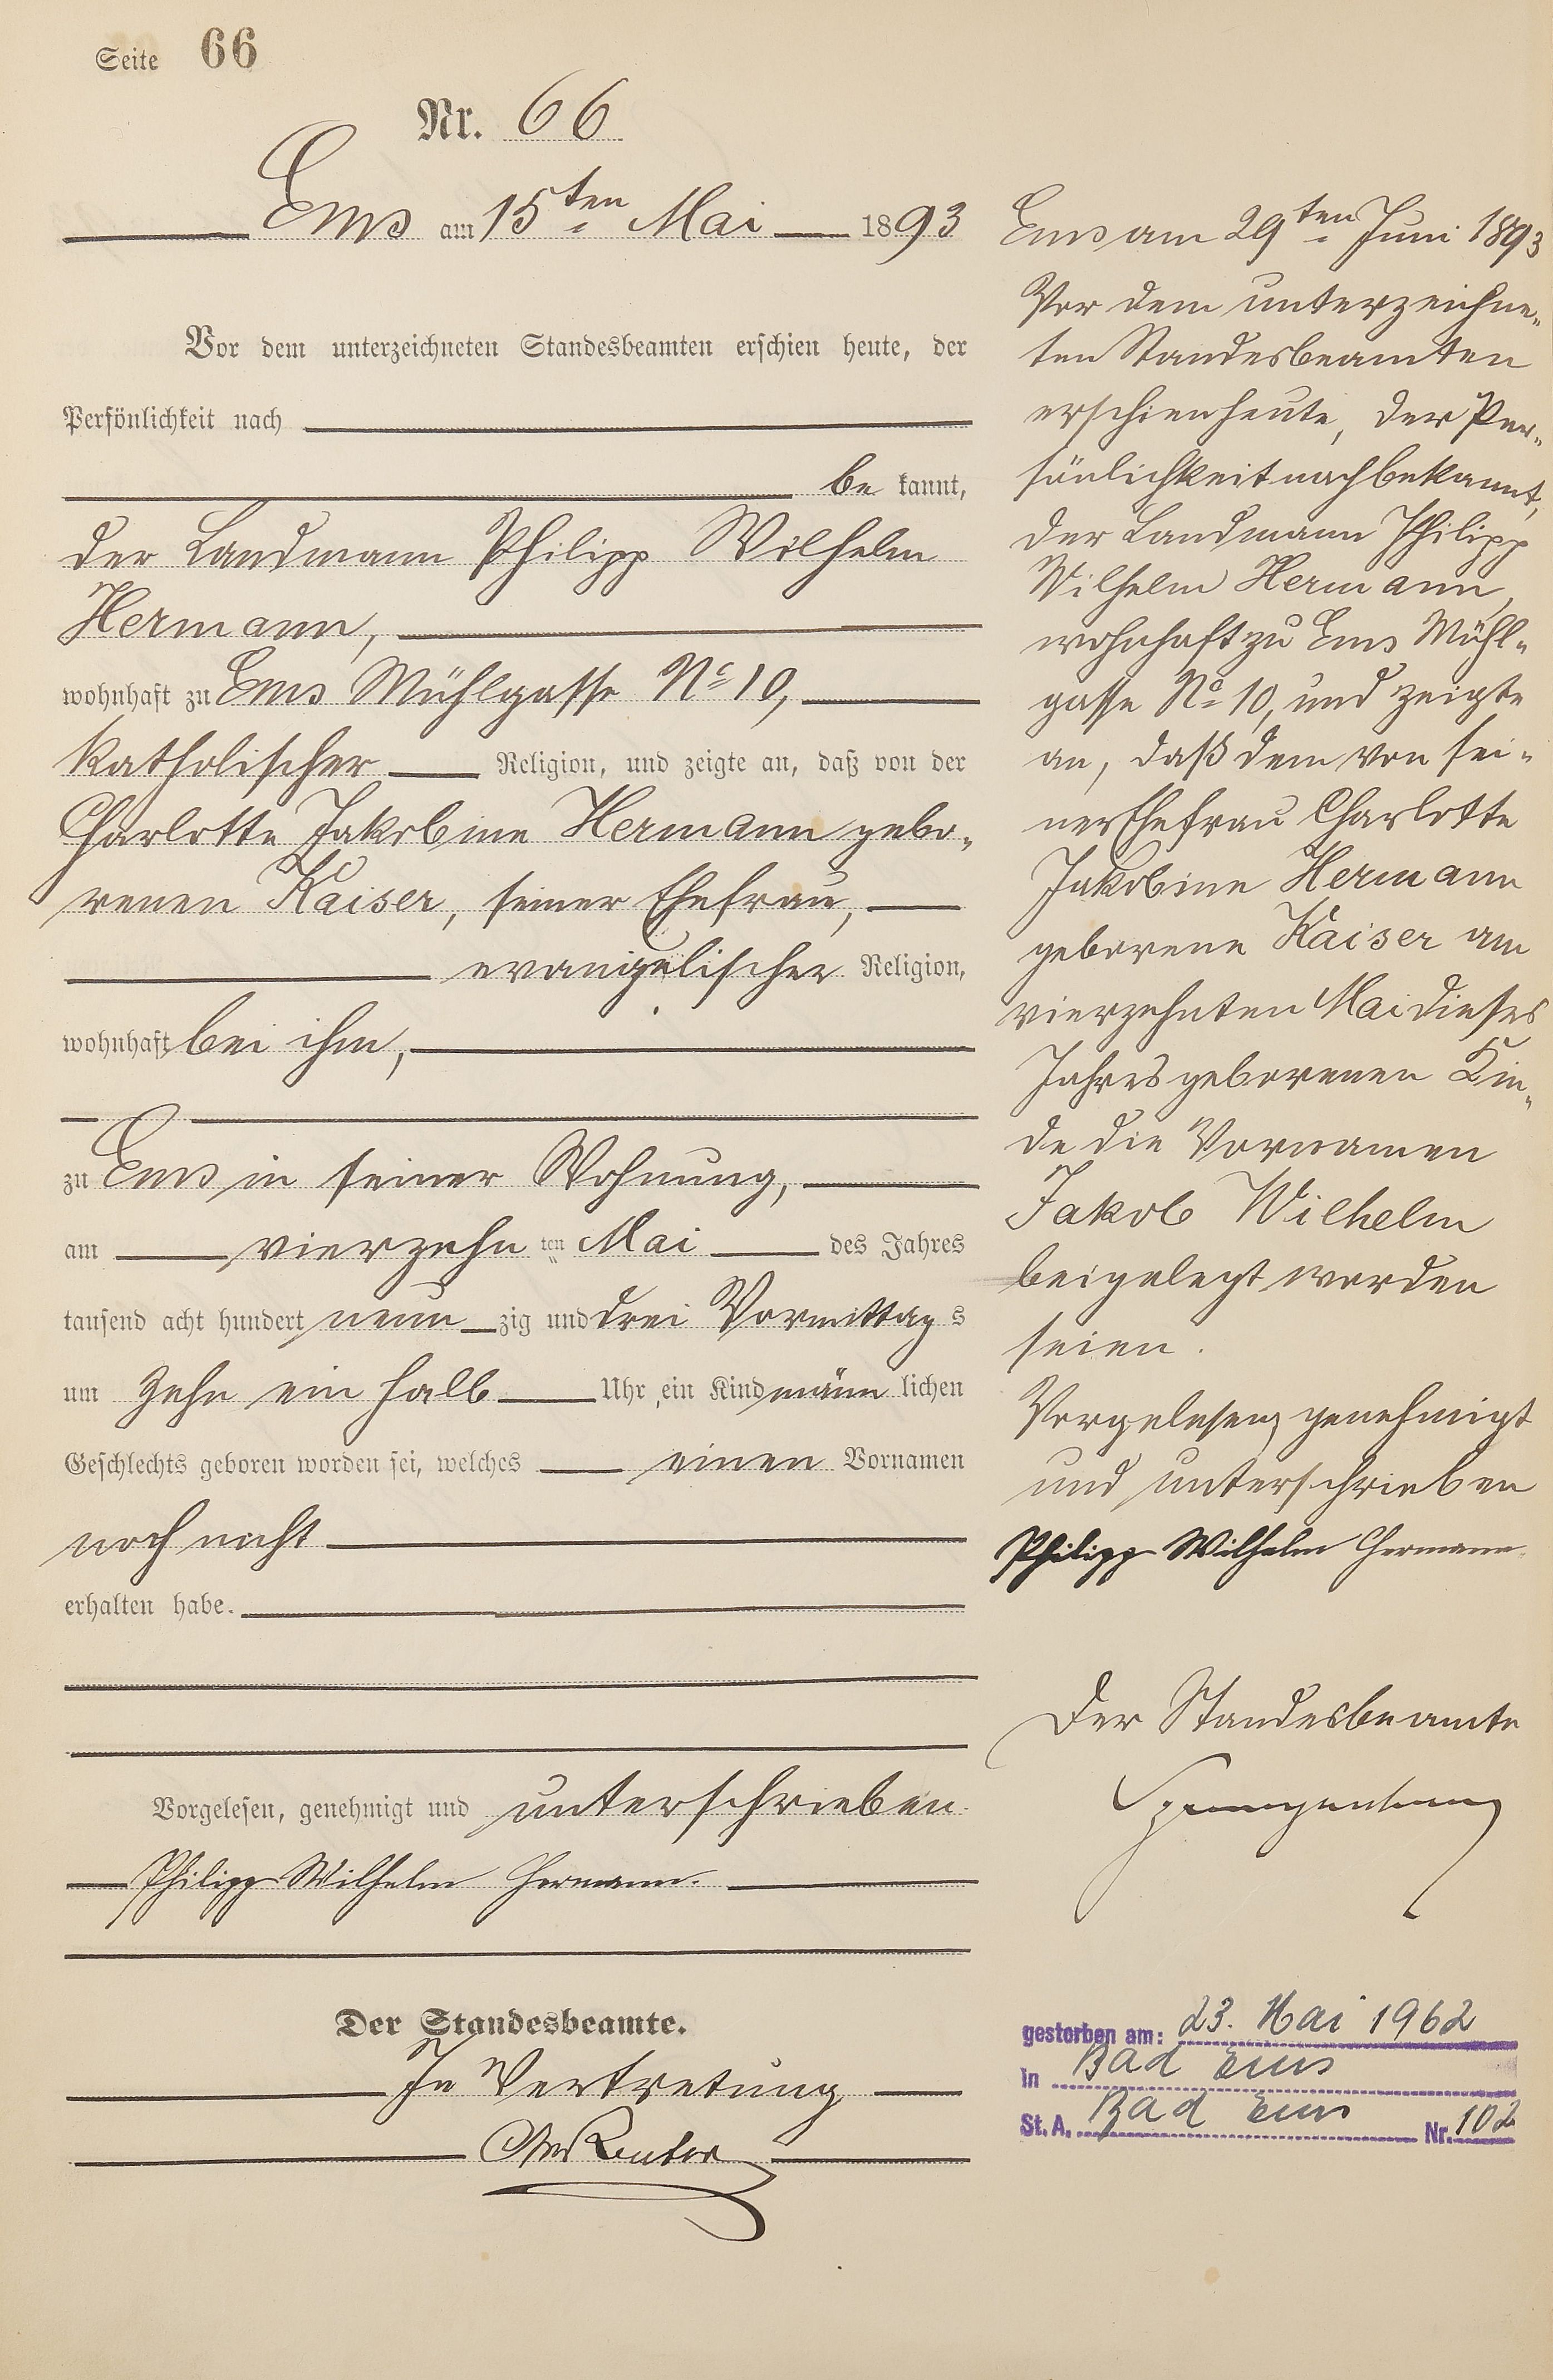 Seite 66
Nr. 66
Ems am 15ten Mai 1893
Vor dem unterzeichneten Standesbeamten erschien heute, der
Persönlichkeit nach
be kannt,
der Landmann Philipp Wilhelm
Hermann,
wohnhaft zu Ems Mühlgasse No 10,
katholischer Religion, und zeigte an, daß von der
Charlotte Jakobine Hermann gebo-
renen Kaiser, seiner Ehefrau,
evangelischer Religion,
wohnhaft bei ihm,
zu Ems in seiner Wohnung,
am vierzehn ten Mai des Jahres
tausend acht hundert neun zig und drei Vormittag s
um zehn ein halb Uhr, ein Kind männ lichen
Geschlechts geboren worden sei, welches einen Vornamen
noch nicht
erhalten habe.
Vorgelesen, genehmigt und unterschrieben
Philipp Wilhelm Hermann.
Der Standesbeamte.
In Vertretung
Ems am 29ten Juni 1893
Vor dem unterzeichne-
ten Standesbeamten
erschien heute, der Per-
sönlichkeit nach bekannt,
der Landmann Philipp
Wilhelm Hermann,
wohnhaft zu Ems Mühl-
gasse No 10, und zeigte
an, daß dem von sei-
ner Ehefrau Charlotte
Jakobine Hermann
geborene Kaiser am
vierzehnten Mai dieses
Jahres geborenen Kin-
de die Vornamen
Jakob Wilhelm
beigelegt worden
seien.
Vorgelesen, genehmigt
und unterschrieben
Philipp Wilhelm Hermann.
Der Standesbeamte
gestorben am: 23. Mai 1962
in Bad Ems
St. A. Bad Ems Nr. 102